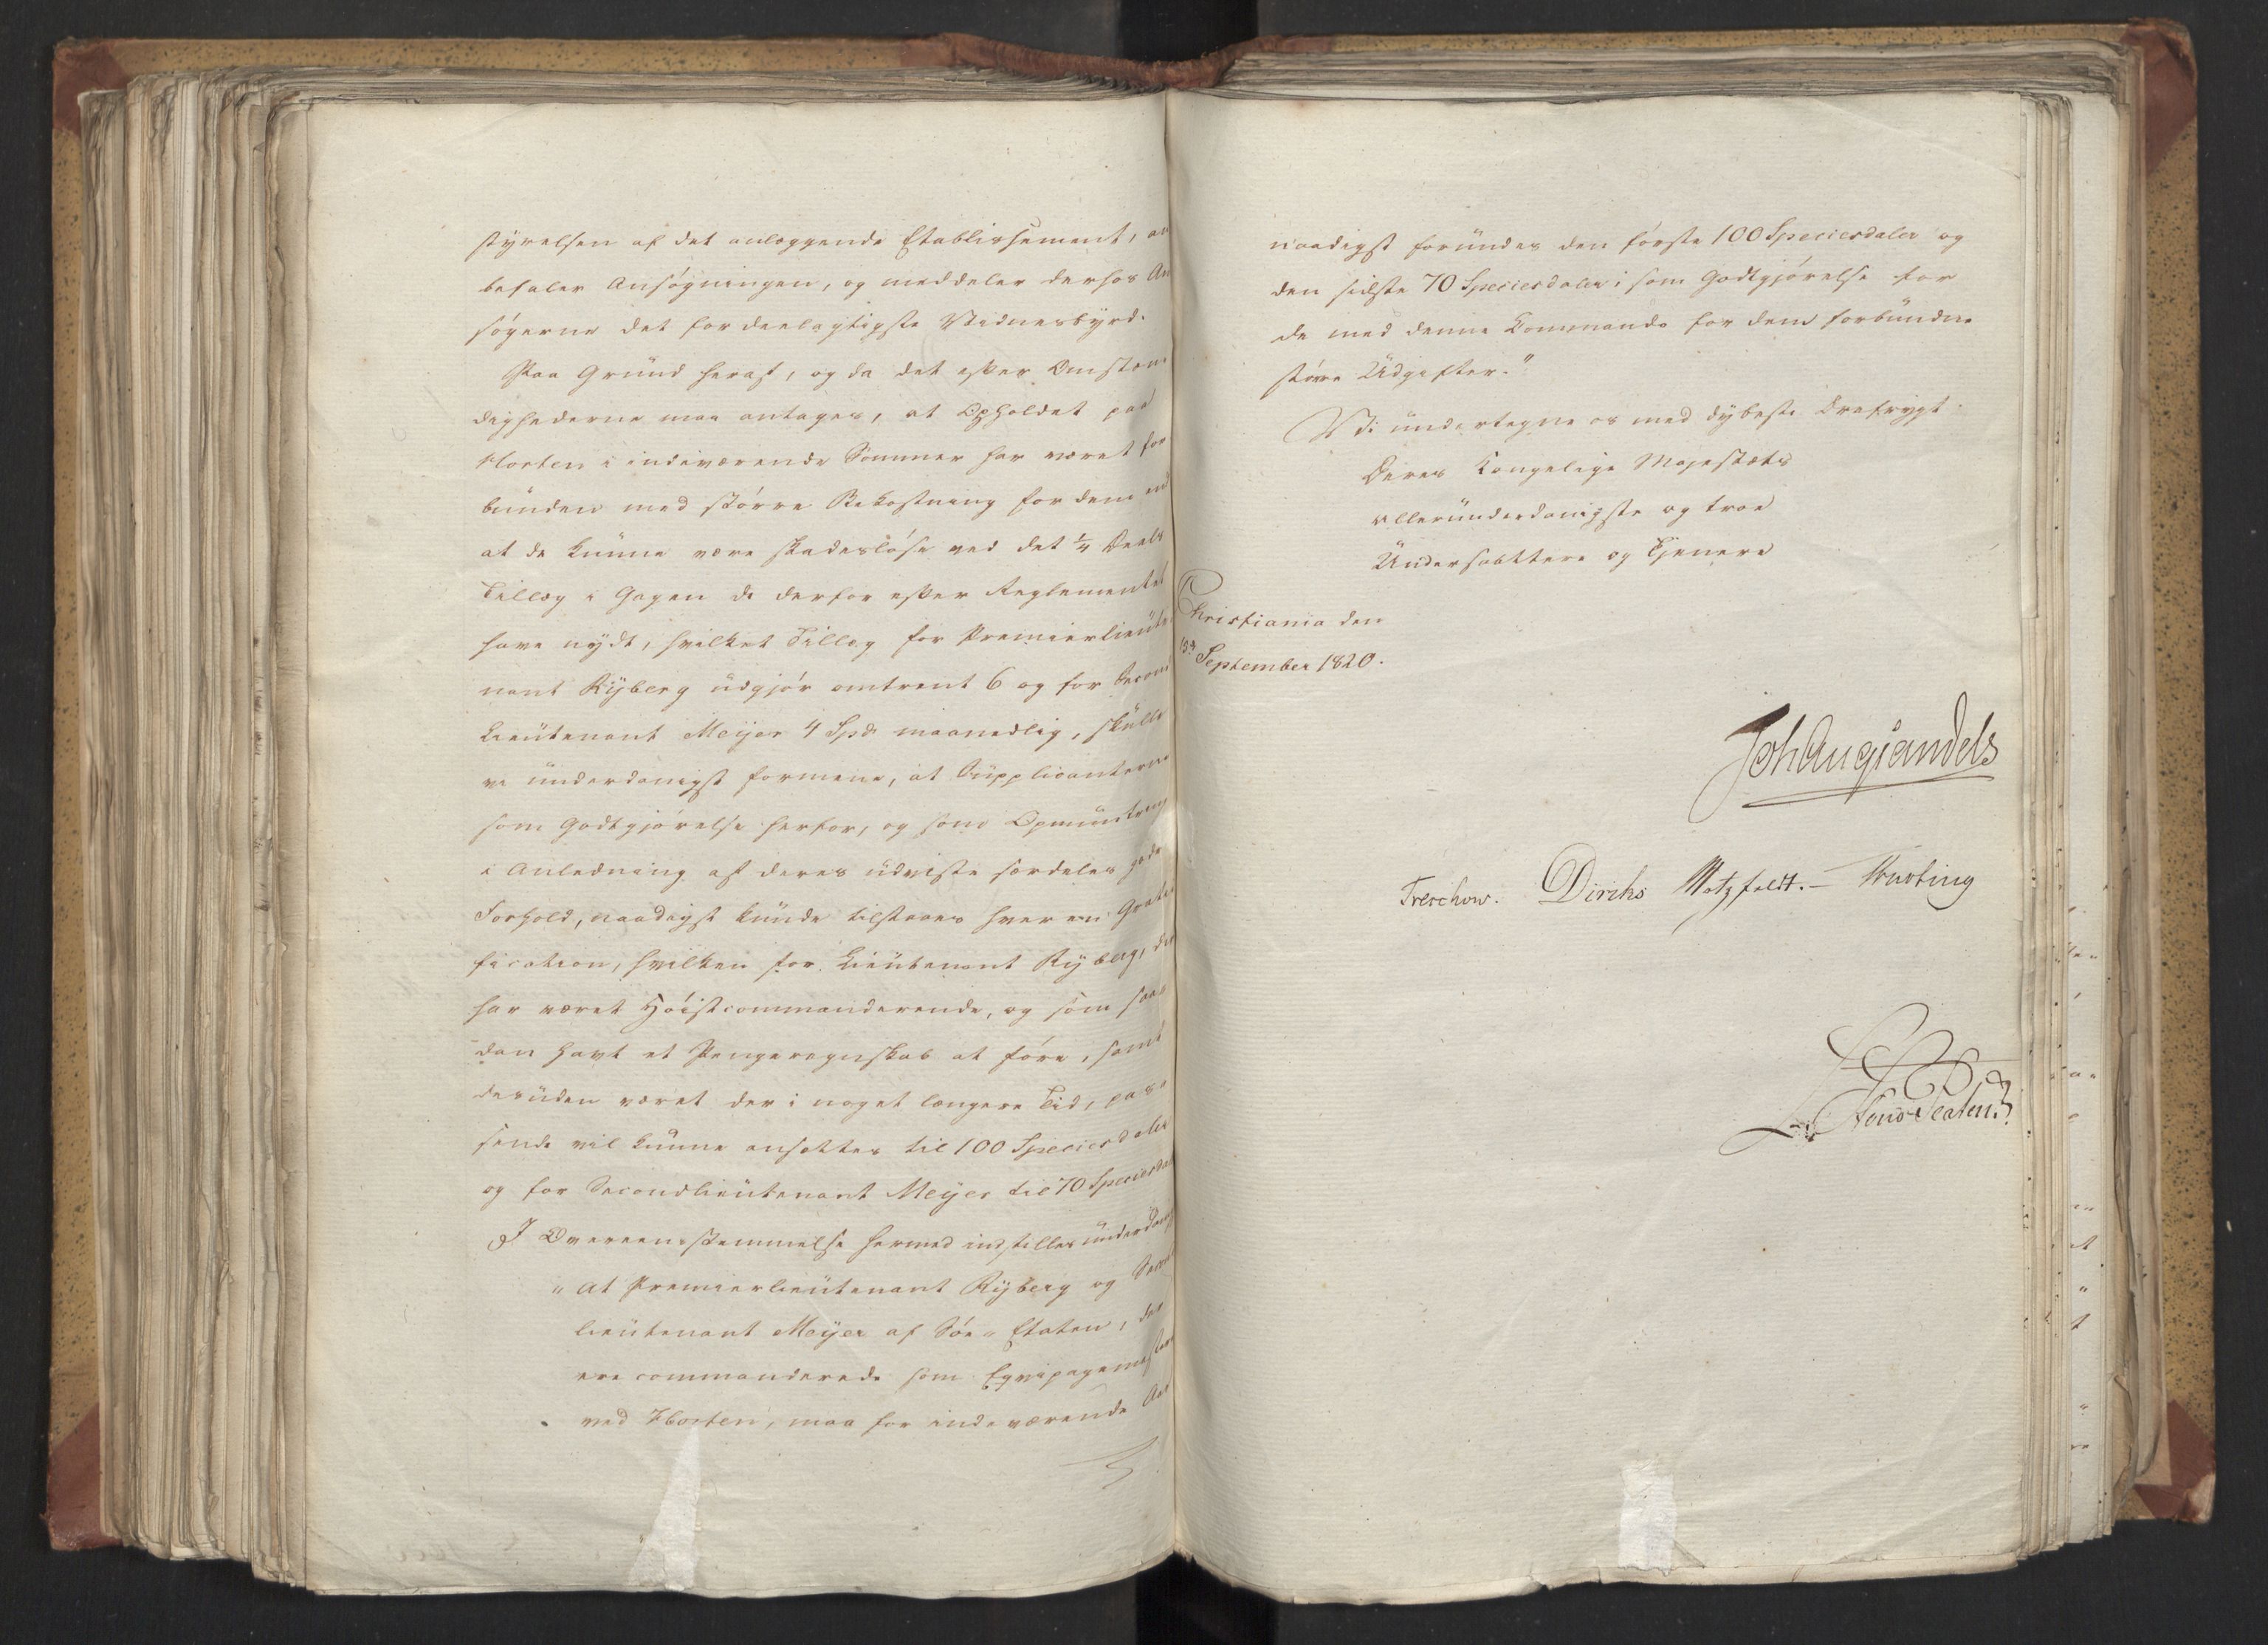 styrelsen af det anlæggende Etablissement, an
befaler Ansøgningen, og meddeler derhos An
søgerne det fordeelagtigste Vidnesbyrd.
Paa Grund heraf, og da det efter Omstæn
dighederne maa antages, at Opholdet paa
Horten i indeværende Sommer har været for
bunden med større Bekostning for dem end
at de kunne være skadesløse ved det ¼ Deels
Tillæg i Gagen de derfor efter Reglementet
have nydt, hvilket Tillæg for Premierlieute
nant Ryberg udgjør omtrent 6 og for Second
Lieutenant Meyer 4 Spd maanedlig, skulle
vi underdanigst formene, at Supplicanterne
som Godtgjørelse herfor, og som Opmuntring
i Anledning af deres udviste særdeles gode
Forhold, naadigst kunde tilstaaes hver en Grati
fication, hvilken for Lieutenant Ryberg, der
har været Høistcommanderende, og som saa
dan havt et Pengeregnskab at føre, samt
desuden været der i noget længere Tid, pas"
sende vil kunne ansættes til 100 Speciesdaler
og for Secondlieutenant Meyer til 70 Speciesdal
I Overeensstemmelse hermed indstilles underdanigst
" at Premierlieutenant Ryberg og Second
lieutenant Meyer af Søe-Etaten, der
ere commanderede som Eqvipagemestere
ved Horten, maa for indeværende Aar
naadigst forundes den første 100 Speciesdaler og
den sidste 70 Speciesdaler, som Godtgjørelse for
de med denne Commando for dem forbundne
større Udgifter."
Vi undertegne os med dybeste Ærefrygt
Deres Kongelige Majestæts
allerunderdanigste og troe
Undersaattere og Tjenere
Christiania den
13de September 1820.
Joh Aug Sandels
Treschow. Diriks Motzfeldt. – Krebting